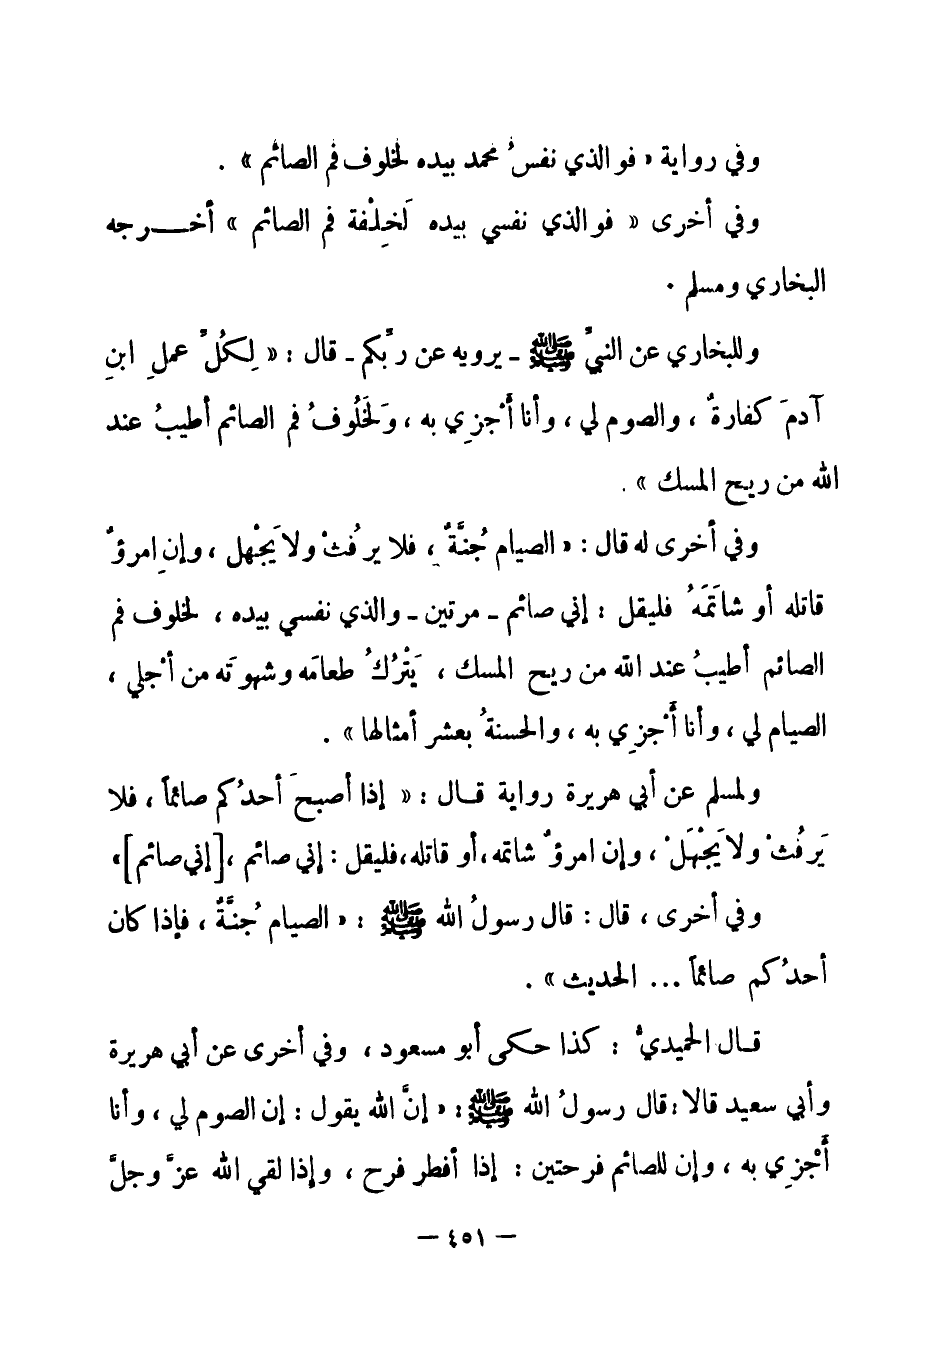 وفي رواية « فو الذي نفسُ محمد بيده لخلوف فم الصائم » .
وفي أخرى « فو الذي نفسي بيده لَخِلْفة فم الصائم » أخــرجه
البخاري ومسلم .
وللبخاري عن النبيِّ ﷺ ـ يرويه عن ربِّكم ـ قال : « لِكُلِّ عملِ ابنِ
آدمَ كفارةٌ ، والصوم لي ، وأنا أَجْزِي به ، وَلَخَلُوفُ فم الصائم أطيبُ عند
الله من ريح المسك » .
وفي أخرى له قال : « الصيام جُنَّةٌ ، فلا يرفُثْ ولا يَجْهل ، وإنِ امرؤٌ
قاتله أو شاتَمَهُ فليقل : إني صائم ـ مرتين ـ والذي نفسي بيده ، لخلوف فم
الصائم أطيبُ عند الله من ريح المسك ، يَتْرُكُ طعامَه وشهوتَه من أجْلي ،
الصيام لي ، وأنا أَجْزِي به ، والحسنةُ بعشر أمثالها » .
ولمسلم عن أبي هريرة رواية قـال : « إذا أصبحَ أحدُكم صائماً ، فلا
يَرفُثْ ولا يَجْهَلْ ، وإن امرؤٌ شاتمه ، أو قاتله ، فليقل : إني صائم ، [إني صائم] »
وفي أخرى ، قال : قال رسولُ الله ﷺ : « الصيام جُنَّةٌ ، فإذا كان
أحدُكم صائماً ... الحديث » .
قـال الحميديُّ : كذا حكى أبو مسعود ، وفي أخرى عن أبي هريرة
وأبي سعيد قالا : قال رسولُ الله ﷺ : « إنَّ الله يقول : إن الصوم لي ، وأنا
أَجْزِي به ، وإن للصائم فرحتين : إذا أفطر فرح ، وإذا لقي الله عزَّ وجلَّ
— ٤٥١ —